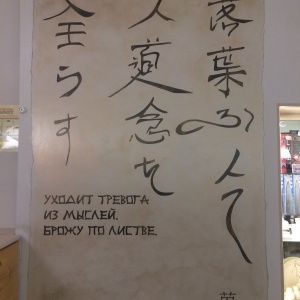 落葉ふんて
人道念を
全うす
УХОДИТ ТРЕВОГА
ИЗ МЫСЛЕЙ.
БРОЖУ ПО ЛИСТВЕ.